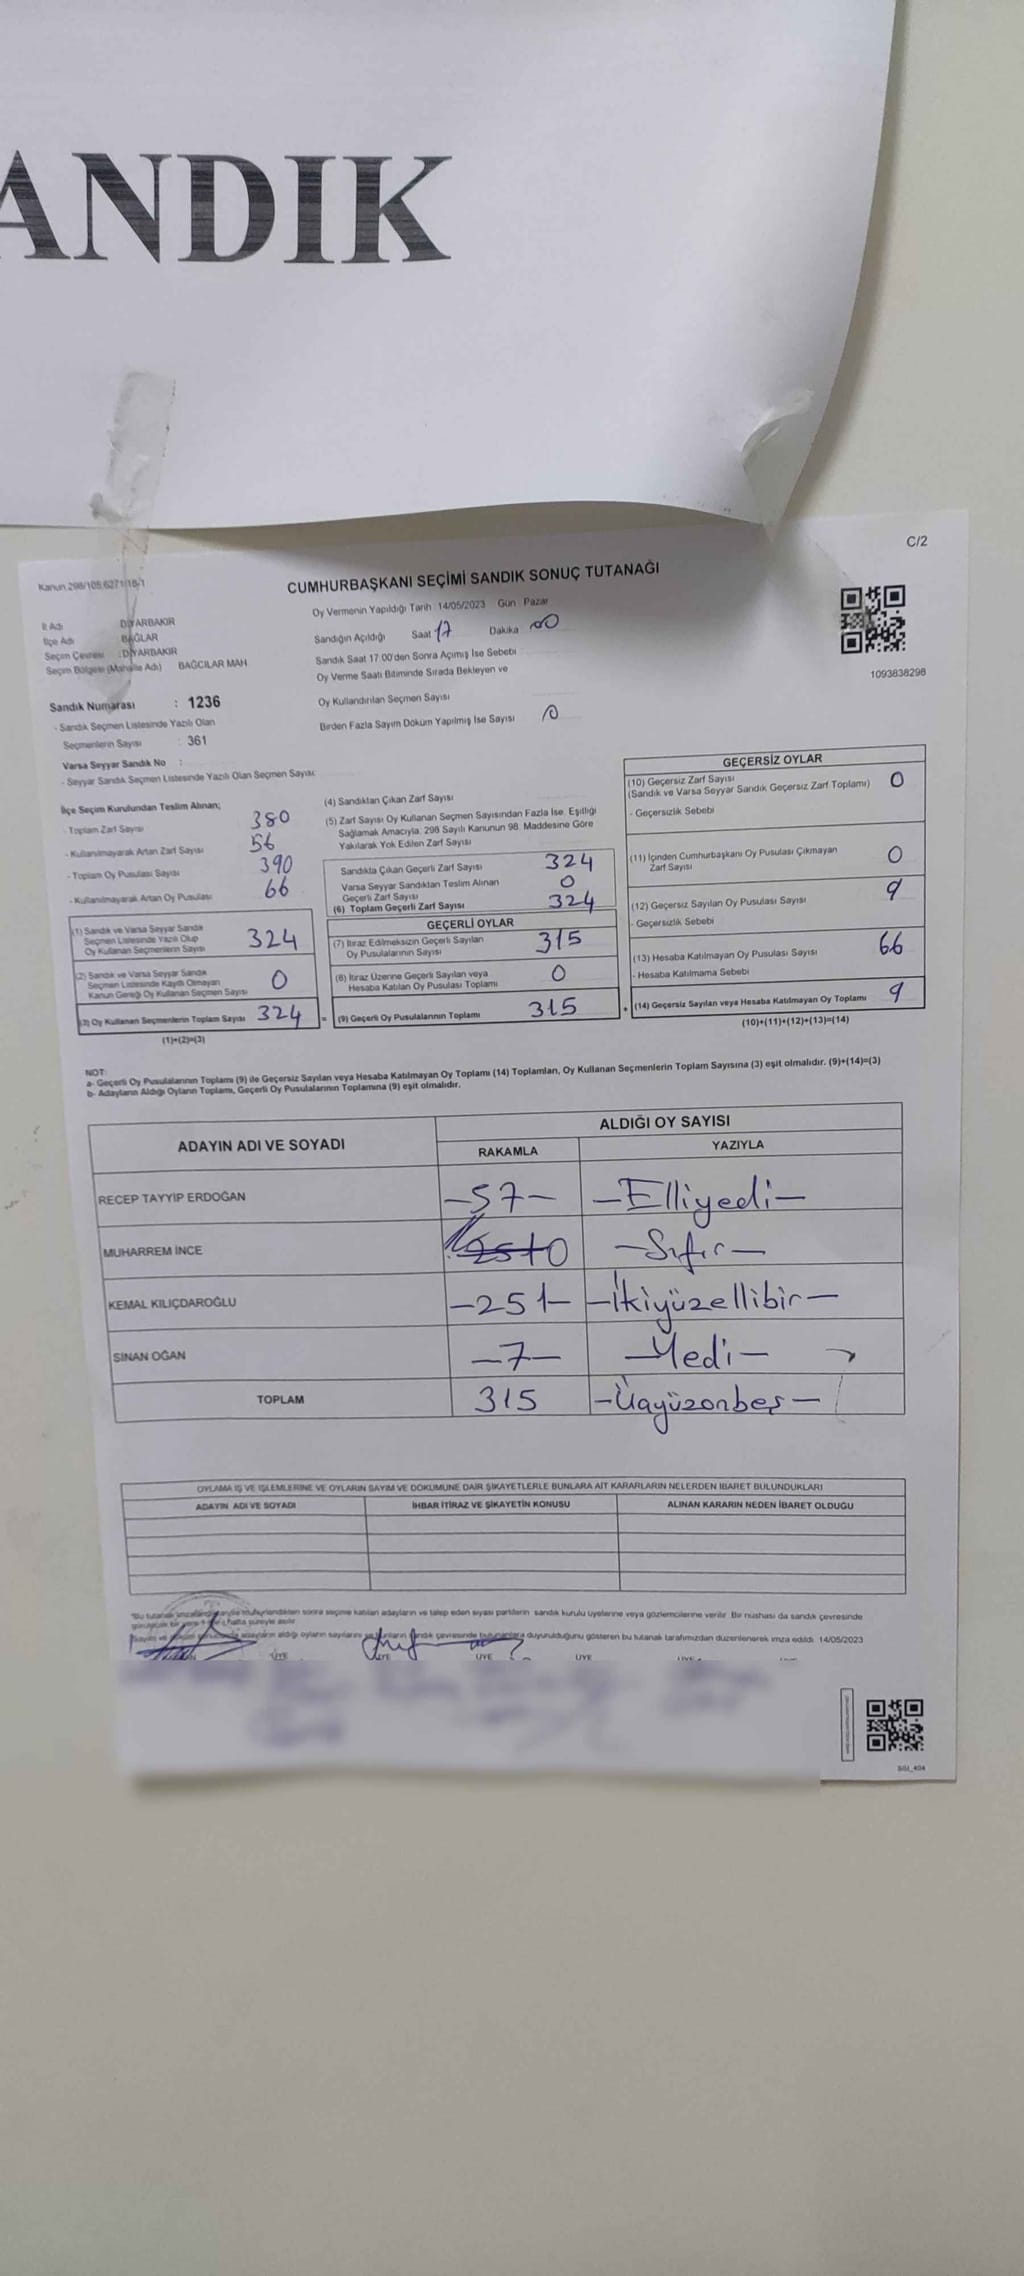 ANDIK
C/2
Kanun 298/105,6271/18/1
CUMHURBAŞKANI SEÇİMİ SANDIK SONUÇ TUTANAĞI
Oy Vermenin Yapıldığı Tarih 14/05/2023 Gün : Pazar
İl Adı DİYARBAKIR
İlçe Adı BAĞLAR
Seçim Çevresi : DİYARBAKIR
Seçim Bölgesi (Mahalle Adı) BAĞCILAR MAH
Sandığın Açıldığı Saat 17 Dakika 00
Sandık Saat 17:00'den Sonra Açımış İse Sebebi
Oy Verme Saati Bitiminde Sırada Bekleyen ve
Oy Kullandırılan Seçmen Sayısı
Birden Fazla Sayım Döküm Yapılmış İse Sayısı 0
1093838298
Sandık Numarası : 1236
- Sandık Seçmen Listesinde Yazılı Olan
Seçmenlerin Sayısı : 361
Varsa Seyyar Sandık No :
- Seyyar Sandık Seçmen Listesinde Yazılı Olan Seçmen Sayısı
İlçe Seçim Kurulundan Teslim Alınan;
- Toplam Zarf Sayısı 380
- Kullanılmayarak Artan Zarf Sayısı 56
- Toplam Oy Pusulası Sayısı 390
- Kullanılmayarak Artan Oy Pusulası 66
(1) Sandık ve Varsa Seyyar Sandık
Seçmen Listesinde Yazılı Olup
Oy Kullanan Seçmenlerin Sayısı 324
(2) Sandık ve Varsa Seyyar Sandık
Seçmen Listesinde Kayıtlı Olmayan
Kanun Gereği Oy Kullanan Seçmen Sayısı 0
(3) Oy Kullanan Seçmenlerin Toplam Sayısı 324
(1)+(2)=(3)
(4) Sandıktan Çıkan Zarf Sayısı
(5) Zarf Sayısı Oy Kullanan Seçmen Sayısından Fazla İse, Eşitliği
Sağlamak Amacıyla, 298 Sayılı Kanunun 98. Maddesine Göre
Yakılarak Yok Edilen Zarf Sayısı
Sandıkta Çıkan Geçerli Zarf Sayısı 324
Varsa Seyyar Sandıktan Teslim Alınan
Geçerli Zarf Sayısı 0
(6) Toplam Geçerli Zarf Sayısı 324
GEÇERLİ OYLAR
(7) İtiraz Edilmeksizin Geçerli Sayılan
Oy Pusulalarının Sayısı 315
(8) İtiraz Üzerine Geçerli Sayılan veya
Hesaba Katılan Oy Pusulası Toplamı 0
= (9) Geçerli Oy Pusulalarının Toplamı 315
GEÇERSİZ OYLAR
(10) Geçersiz Zarf Sayısı
(Sandık ve Varsa Seyyar Sandık Geçersiz Zarf Toplamı) 0
- Geçersizlik Sebebi
(11) İçinden Cumhurbaşkanı Oy Pusulası Çıkmayan
Zarf Sayısı 0
(12) Geçersiz Sayılan Oy Pusulası Sayısı 9
- Geçersizlik Sebebi
(13) Hesaba Katılmayan Oy Pusulası Sayısı 66
- Hesaba Katılmama Sebebi
+ (14) Geçersiz Sayılan veya Hesaba Katılmayan Oy Toplamı 9
(10)+(11)+(12)+(13)=(14)
NOT:
a- Geçerli Oy Pusulalarının Toplamı (9) ile Geçersiz Sayılan veya Hesaba Katılmayan Oy Toplamı (14) Toplamları, Oy Kullanan Seçmenlerin Toplam Sayısına (3) eşit olmalıdır. (9)+(14)=(3)
b- Adayların Aldığı Oyların Toplamı, Geçerli Oy Pusulalarının Toplamına (9) eşit olmalıdır.
ADAYIN ADI VE SOYADI ALDIĞI OY SAYISI
RAKAMLA YAZIYLA
RECEP TAYYİP ERDOĞAN -57- -Elliyedi-
MUHARREM İNCE 0 -Sıfır-
KEMAL KILIÇDAROĞLU -251- -İkiyüzellibir-
SİNAN OĞAN -7- -Yedi-
TOPLAM 315 -Üçyüzonbeş-
OYLAMA İŞ VE İŞLEMLERİNE VE OYLARIN SAYIM VE DÖKÜMÜNE DAİR ŞİKAYETLERLE BUNLARA AİT KARARLARIN NELERDEN İBARET BULUNDUKLARI
ADAYIN ADI VE SOYADI İHBAR İTİRAZ VE ŞİKAYETİN KONUSU ALINAN KARARIN NEDEN İBARET OLDUĞU
sonra seçime katılan adayların ve talep eden siyasi partilerin sandık kurulu üyelerine veya gözlemcilerine verilir. Bir nüshası da sandık çevresinde
hafta süreyle asılır
adayların aldığı oyların sayılarını sandık çevresinde bulunanlara duyurulduğunu gösteren bu tutanak tarafımızdan düzenlenerek imza edildi. 14/05/2023
ÜYE ÜYE ÜYE ÜYE